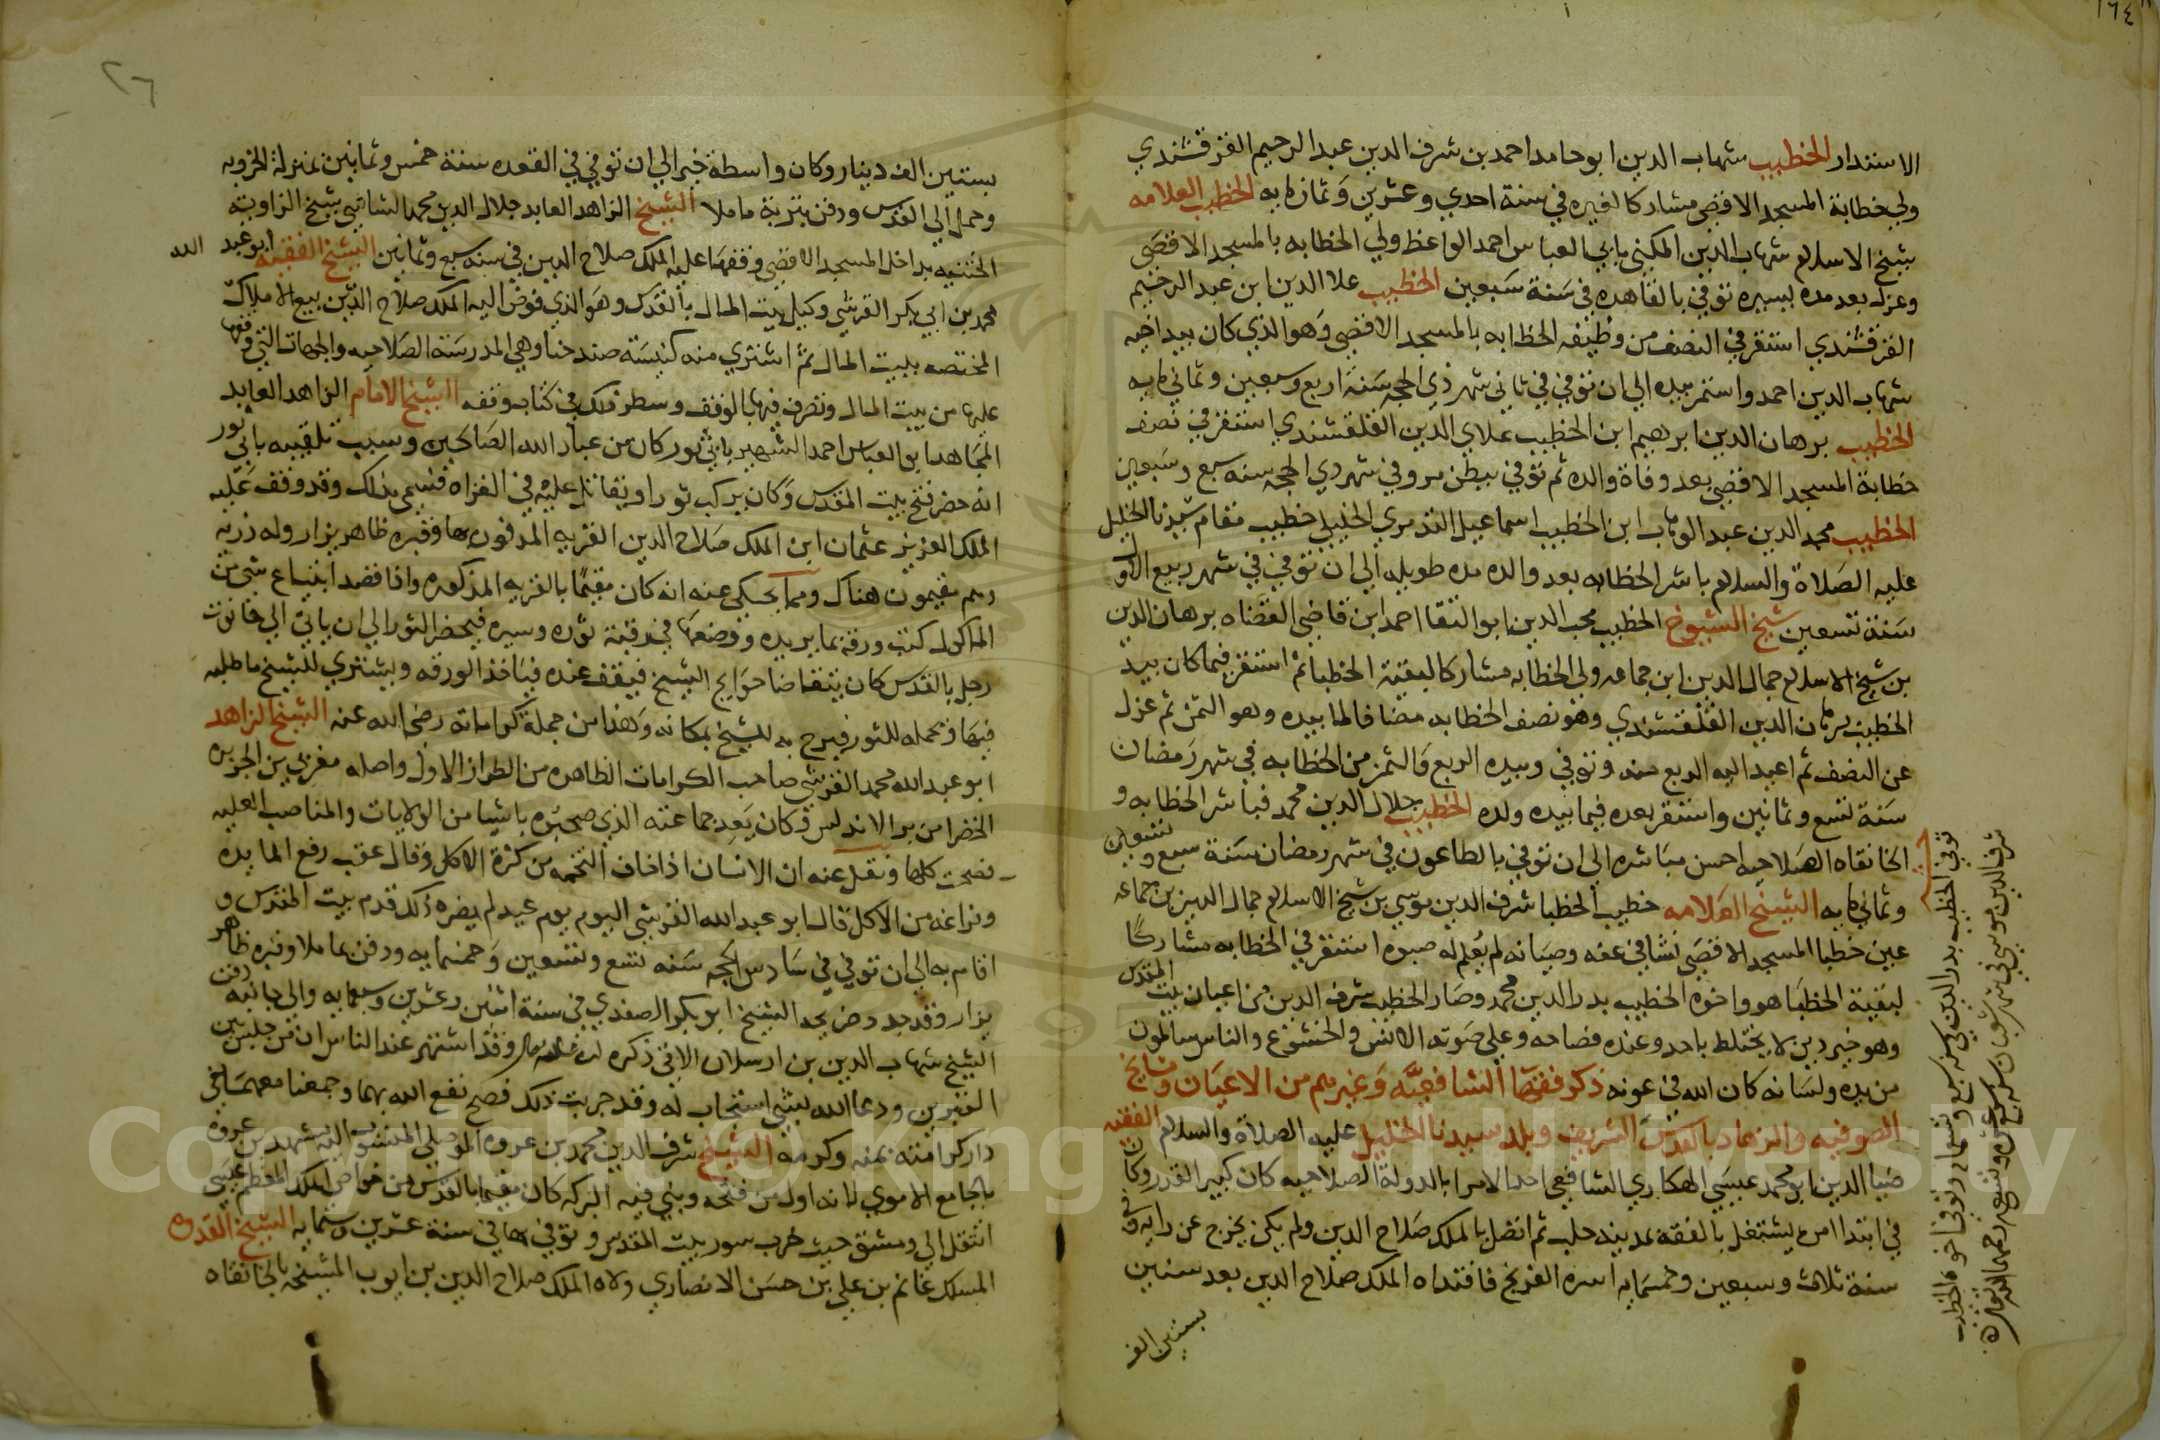 ١٦٤
الاستندار الخطيب شهاب الدين ابو حامد احمد بن شرف الدين عبد الرحيم القرقشندي
ولي خطابة المسجد الاقصى مشاركا لغيره في سنة احدي وعشرين وثمانمايه الخطيب العلامه
شيخ الاسلام شهاب الدين المكنى بابي العباس احمد الواعظ ولي الخطابه بالمسجد الاقصى
وعزل بعد مده يسيره توفي بالقاهره في سنة سبعين الخطيب علا الدين ابن عبد الرحيم
القرقشندي استقر في النصف من وظيفه الخطابه بالمسجد الاقصى وهو الذي كان بيد اخيه
شهاب الدين احمد واستمر بيده الي ان توفي في ثاني شهر ذي الحجه سنة اربع وسبعين وثماني مايه
الخطيب برهان الدين ابرهيم ابن الخطيب علاي الدين القلقشندي استقر في نصف
خطابة المسجد الاقصى بعد وفاة والده ثم توفي ببطن مرو في شهر ذي الحجه سنه سبع وسبعين
الخطيب مجد الدين عبد الوهاب ابن الخطيب اسماعيل التدمري الخليلي خطيب مقام سيدنا الخليل
عليه الصلاة والسلام باشر الخطابه بعد والده مده طويله الي ان توفي في شهر ربيع الاول
سنة تسعين شيخ الشيوخ الخطيب محب الدين ابو البقا احمد ابن قاضي القضاه برهان الدين
بن شيخ الاسلام جمال الدين ابن جماعه ولي الخطابه مشاركا لبقية الخطبا ثم استقر فيما كان بيد
الخطيب برهان الدين القلقشندي وهو نصف الخطابه مضافا لما بيده وهو الثمن ثم عزل
عن النصف ثم اعيد اليه الربع منه وتوفي وبيده الربع والثمن من الخطابه في شهر رمضان
سنة تسع وثمانين واستقر بعده فيما بيده ولده الخطيب جلال الدين محمد فباشر الخطابه و
الخانقاه الصلاحيه احسن مباشره الي ان توفي بالطاعون في شهر رمضان سنة سبع وتسعين
وثماني مايه الشيخ العلامه خطيب الخطبا شرف الدين موسي بن شيخ الاسلام جمال الدين بن جماعه
عين خطبا المسجد الاقصى نشا في عفه وصيانه لم يعلم له صبوه استقر في الخطابه مشاركا
لبقية الخطبا هو واخوه الخطيب بدر الدين محمد وصار الخطيب شرف الدين من اعيان بيت المقدس
وهو خير دين لا يختلط باحد وعنده فصاحه وعلي صوته الانس والخشوع والناس سالمون
من يده ولسانه كان الله في عونه ذكر فقها الشافعيه وغيرهم من الاعيان ومشايخ
الصوفيه والزهاد بالقدس الشريف وبلد سيدنا الخليل عليه الصلاة والسلام الفقيه
ضيا الدين ابو محمد عيسى الهكاري الشافعي احد الامرا بالدولة الصلاحيه كان كبير القدر وكان
في ابتدا امره يشتغل بالفقه بمدينه حلب ثم اتصل بالملك صلاح الدين ولم يكن يخرج عن رايه وفي
سنة ثلاث وسبعين وخمسمايه اسره الفرنج فافتداه الملك صلاح الدين بعد سنتين
بستين الف
توفي الخطيب بدر الدين في سنه سبع وتسعمايه وتوفي اخوه الخطيب
شرف الدين موسي في شهر شعبان سنه عشره وتسعمايه رحمهما الله
٢٦
بستين الف دينار وكان واسطة خير الي ان توفي في القعده سنة خمس وثمانين بمنزلة الخروبه
وحمل الي القدس ودفن بتربة ماملا الشيخ الزاهد العابد جلال الدين محمد الشاشي شيخ الزاويه
الختنيه بداخل المسجد الاقصى وقفها عليه الملك صلاح الدين في سنه سبع وثمانين الشيخ الفقيه ابو عبد الله
محمد بن ابي بكر القرشي وكيل بيت المال بالقدس وهو الذي فوض اليه الملك صلاح الدين بيع الاملاك
المختصه ببيت المال ثم اشتري منه كنيسة صندحنا وهي المدرسة الصلاحيه والجهات التي وقفها
عليها من بيت المال وتصرف فيها بالوقف وسطر ذلك في كتاب وقفه الشيخ الامام الزاهد العابد
المجاهد ابو العباس احمد الشهير بابي ثور كان من عباد الله الصالحين وسبب تلقيبه بابي ثور
انه حضر فتح بيت المقدس وكان يركب ثورا ويقاتل عليه في الغزاه فسمي بذلك وقد وقف عليه
الملك العزيز عثمان ابن الملك صلاح الدين القريه المدفون بها وقبره ظاهر يزار وله ذريه
وهم مقيمون هناك ومما يحكى عنه انه كان مقيما بالقريه المذكوره واذا قصد ابتياع شي من
الماكول كتب ورقه بما يريده ووضعها في رقبة ثوره وسيره فيحضر الثور الي ان ياتي الي حانوت
رجل بالقدس كان يتقاضا حوايج الشيخ فيقف عنده فياخذ الورقه ويشتري للشيخ ما طلبه
فيها ويحمله للثور فيرجع به للشيخ بمكانه وهذا من جملة كراماته رضي الله عنه الشيخ الزاهد
ابو عبد الله محمد القرشي صاحب الكرامات الظاهره من الطراز الاول واصله مغربي من الجزيره
الخضرا من بر الاندلس وكان يعد جماعته الذي صحبوه باشيا من الولايات والمناصب العليه
فصحت كلها ونقل عنه ان الانسان اذا خاف التخمه من كثرة الاكل وقال عقب رفع المايده
وفراغه من الاكل قال ابو عبد الله القرشي اليوم يوم عيد لم يضره ذلك قدم بيت المقدس و
اقام به الي ان توفي في سادس الحجه سنه تسع وتسعين وخمسمايه ودفن بماملا وقبره ظاهر
يزار وقد جدد ضريحه الشيخ ابو بكر الصفدي في سنة اثنين وعشرين وسبعمايه والي جانبه دفن
الشيخ شهاب الدين بن ارسلان الاتي ذكره وقد اشتهر عند الناس ان من جلس بين
القبرين ودعا الله بشي استجاب له وقد جربت ذلك فصح نفع الله بهما وجمعنا معهما في
دار كرامته بمنه وكرمه الشيخ شرف الدين محمد بن عروه الموصلي المنسوب اليه مشهد بن عروه
بالجامع الاموي لانه اول من فتحه وبني فيه البركه كان مقيما بالقدس من خواص الملك المعظم عيسى
انتقل الي دمشق حيث خرب سور بيت المقدس وتوفي بها في سنة عشرين وستمايه الشيخ القدوه
المسلك غانم بن علي بن حسن الانصاري ولاه الملك صلاح الدين بن ايوب المشيخه بالخانقاه
Copyright © King Saud University